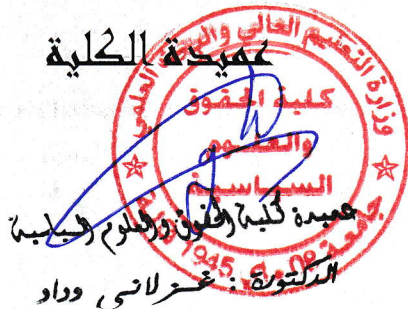 عميدة الكلية
وزارة التعليم العالي والبحث العلمي
كلية الحقوق
والعلوم
السياسية
جامعة 08 ماي 1945
عميدة كلية الحقوق والعلوم السياسية
الدكتورة : غزلاني وداد